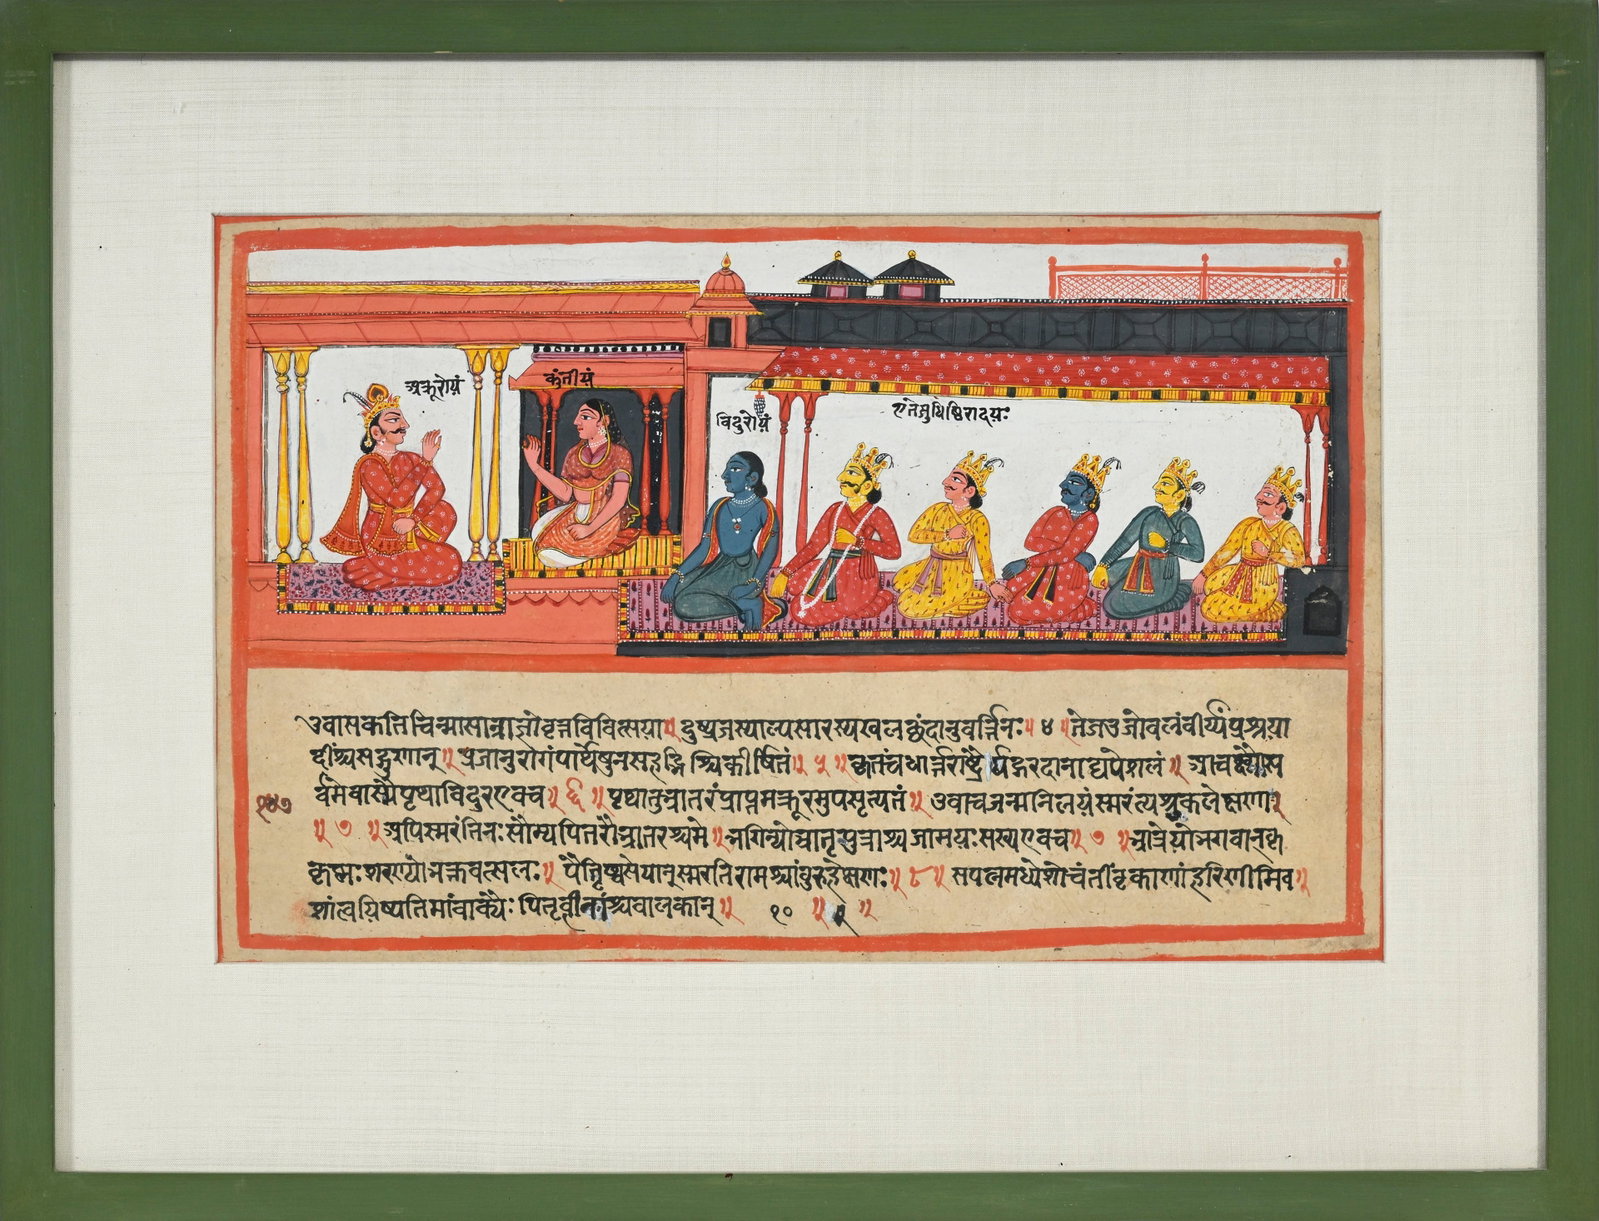 अक्रूरोयं
कुंतीयं
विदुरोयं
एतेयुधिष्ठिरादयः
उवासकतिचिन्मासान्राज्ञोवृत्तविवित्सया॥दुष्प्रजस्याल्पसारस्यखलछंदानुवर्त्तिनः॥४॥तेजउजोबलंवीर्य्यंप्रश्रया
दींश्चसद्गुणान्॥प्रजानुरागंपार्थेषुनसहद्भिश्चिकीर्षितं॥५॥कृतंचधार्त्तराष्ट्रैर्यद्गरदानाद्यपेशलं॥आचख्यौस
१४७
र्वमेवास्मैपृथाविदुरएवच॥६॥पृथातुभ्रातरंप्राप्तमक्रूरमुपसृत्यतं॥उवाचजन्मनिलयंस्मरंत्यश्रुकलेक्षणा॥
॥७॥अपिस्मरंतिनःसौम्यपितरौभ्रातरश्चमे॥भगिन्यौभ्रातृपुत्राश्चजामयःसख्यएवच॥७॥भ्रात्रेयोभगवान्कृ
कृष्णःशरण्योभक्तवत्सलः॥पैतृष्वसेयानुस्मरतिरामश्चांबुरुहेक्षणः॥८॥सपत्नमध्येशोचंतींवृकाणांहरिणीमिव॥
शांत्वयिष्यतिमांवाक्यैःपितृहीनांश्चबालकान्॥१०॥॥